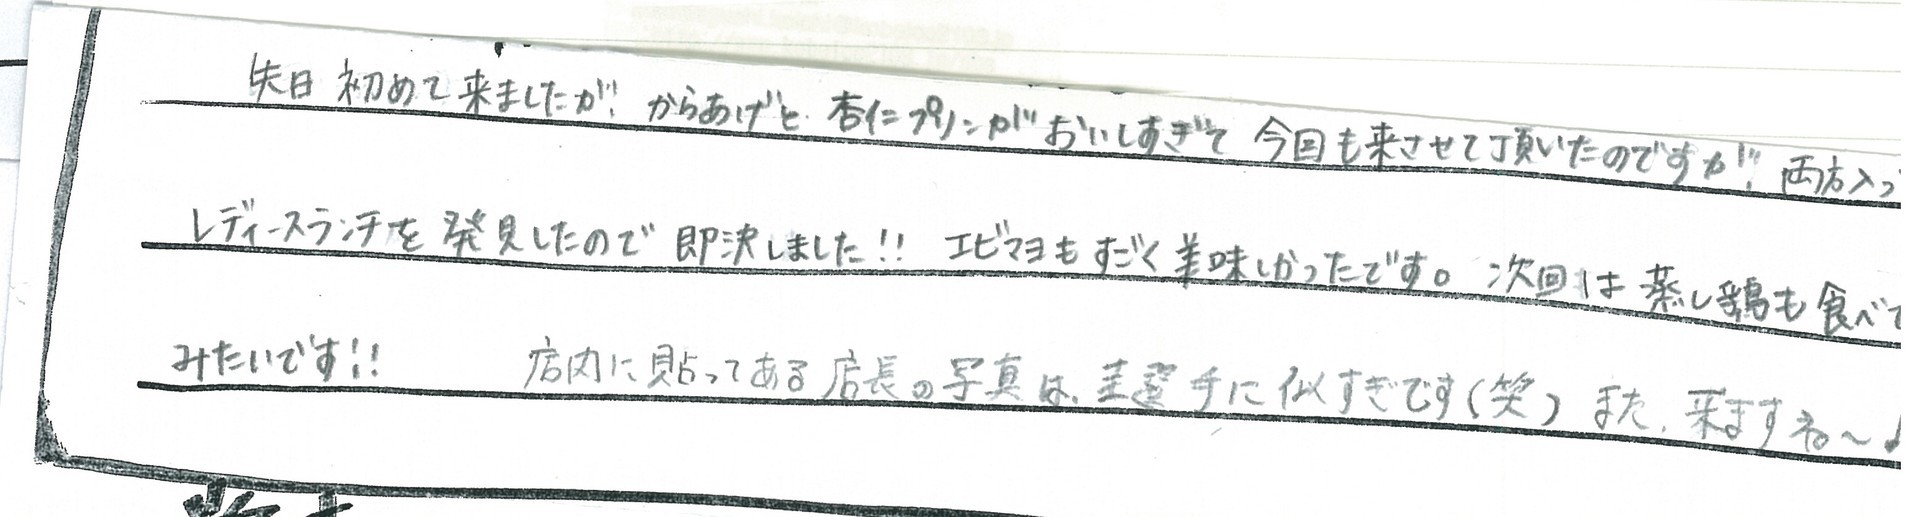 先日 初めて来ましたが、からあげと 杏仁プリンが おいしすぎて 今回も来させて頂いたのですが、両方入っ
レディースランチを 発見したので 即決しました!! エビマヨも すごく美味しかったです。 次回は 蒸し鶏も食べて
みたいです!! 店内に貼ってある店長の写真は、 選手に似すぎです(笑) また、来ますね～♪